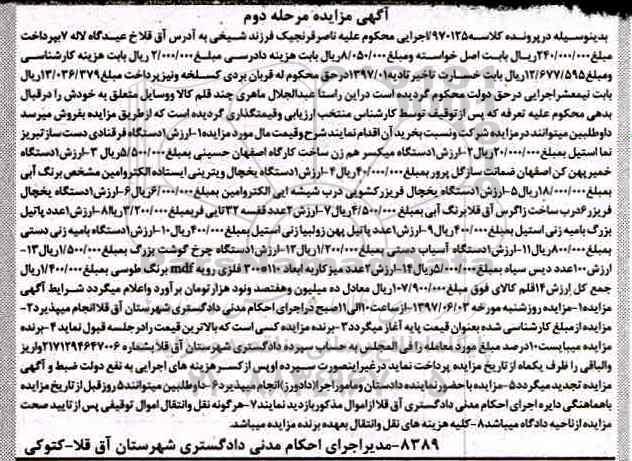 آگهی مزایده مرحله دوم
بدینوسیله در پرونده کلاسه ۹۷۰۱۲۵/اجرایی محکوم علیه ناصر فرنجیک فرزند شیخی به آدرس آق قلا خ عیدگاه لاله ۷ بپرداخت
مبلغ ۲۴۰/۰۰۰/۰۰۰ ریال بابت اصل خواسته ومبلغ ۸/۰۵۰/۰۰۰ ریال بابت هزینه دادرسی مبلغ ۲/۰۰۰/۰۰۰ ریال بابت هزینه کارشناسی
ومبلغ ۱۲/۶۷۷/۵۹۵ ریال بابت خسارت تاخیر تادیه ۱۳۹۷/۰۱ در حق محکوم له قربان بردی کسلخه و نیز پرداخت مبلغ ۱۳/۰۳۶/۳۷۹ ریال
بابت نیمعشر اجرایی در حق دولت محکوم گردیده است در این راستا عبدالجلال ماهری چند قلم کالا و وسایل متعلق به خودش را در قبال
بدهی محکوم علیه تعرفه که پس از توقیف توسط کارشناس منتخب ارزیابی وقیمتگذاری گردیده است که از طریق مزایده بفروش میرسد
داوطلبین میتوانند در مزایده شرکت ونسبت بخرید آن اقدام نمایند شرح وقیمت مال مورد مزایده ۱-ارزش ۱ دستگاه فر قنادی دست ساز تبریز
نما استیل بمبلغ ۲۰/۰۰۰/۰۰۰ ریال ۲-ارزش ۱ دستگاه میکسر هم زن ساخت کارگاه اصفهان حسینی بمبلغ ۵/۵۰۰/۰۰۰ ریال ۳-ارزش ۱ دستگاه
خمیر پهن کن اصفهان ضمانت سازگل پرور بمبلغ ۴۰/۰۰۰/۰۰۰ ریال ۴-ارزش ۱ دستگاه یخچال ویترینی ایستاده الکتروامین مشخص برنگ آبی
بمبلغ ۱۸/۰۰۰/۰۰۰ ریال ۵-ارزش ۱ دستگاه یخچال فریزر کشویی درب شیشه ایی الکتروامین بمبلغ ۶/۰۰۰/۰۰۰ ریال ۶-ارزش ۱ دستگاه یخچال
فریزر ۶ درب ساخت زاگرس آق قلا برنگ آبی بمبلغ ۴/۵۰۰/۰۰۰ ریال ۷-ارزش ۲ عدد قفسه ۳۲ تایی فر بمبلغ ۳/۲۰۰/۰۰۰ ریال ۸-ارزش ۱ عدد پاتیل
بزرگ بامیه زنی استیل بمبلغ ۴۰۰/۰۰۰ ریال ۹-ارزش ۱ عدد پاتیل پهن زولبیا زنی استیل بمبلغ ۴۰۰/۰۰۰ ریال ۱۰-ارزش ۱ دستگاه بامیه زنی دستی
بمبلغ ۸۰۰/۰۰۰ ریال ۱۱-ارزش ۱ دستگاه آسیاب دستی بمبلغ ۱/۲۰۰/۰۰۰ ریال ۱۲-ارزش ۱ دستگاه چرخ گوشت بزرگ بمبلغ ۱/۵۰۰/۰۰۰ ریال ۱۳-
ارزش ۱۰۰ عدد دیس سیاه بمبلغ ۵/۰۰۰/۰۰۰ ریال ۱۴-ارزش ۲ عدد میز کاربه ابعاد ۱۱۰*۳۰۰ فلزی رویه mdf برنگ طوسی بمبلغ ۱/۴۰۰/۰۰۰ ریال
جمع کل ارزش ۱۴ قلم کالای فوق مبلغ ۱۰۷/۹۰۰/۰۰۰ ریال معادل ده میلیون وهفتصد ونود هزار تومان برآورد واعلام میگردد شرایط آگهی
مزایده ۱-مزایده روز شنبه مورخه ۱۳۹۷/۰۶/۰۳-از ساعت ۱۰ الی ۱۱ صبح در اجرای احکام مدنی دادگستری شهرستان آق قلا انجام میپذیرد ۲-
مزایده از مبلغ کارشناسی شده بعنوان قیمت پایه آغاز میگردد ۳-برنده مزایده کسی است که بالاترین قیمت را در جلسه قبول نماید ۴-برنده
مزایده میبایست ۱۰ درصد مبلغ مورد معامله را فی المجلس به حساب سپرده دادگستری شهرستان آق قلا بشماره ۲۱۷۱۲۹۴۶۴۷۰۰۶ واریز
والباقی را ظرف یکماه از تاریخ مزایده پرداخت نماید در غیر اینصورت سپرده او پس از کسر هزینه های اجرایی به نفع دولت ضبط و آگهی
مزایده تجدید میگردد ۵-مزایده با حضور نماینده دادستان و مامور اجرا (دادورز) انجام میپذیرد ۶-داوطلبین میتوانند ۵ روز قبل از تاریخ مزایده
باهماهنگی دایره اجرای احکام مدنی دادگستری آق قلا از اموال مذکور بازدید نمایند ۷-هر گونه نقل وانتقال اموال توقیفی پس از تایید صحت
مزایده از ناحیه دادگاه میباشد ۸-کلیه هزینه های نقل وانتقال بعهده برنده مزایده میباشد.
۸۳۸۹-مدیر اجرای احکام مدنی دادگستری شهرستان آق قلا-کتوکی